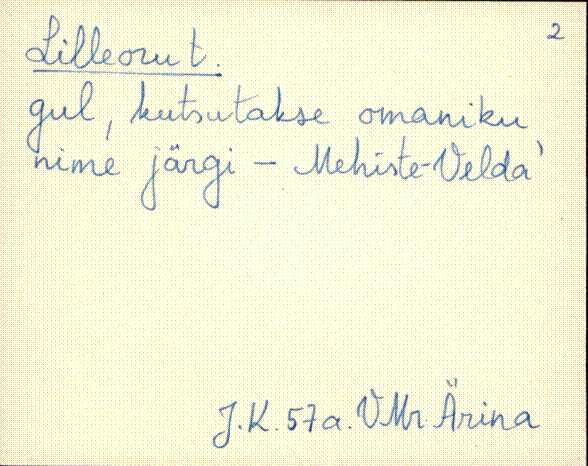 2
Lilleoru t.
gul, kutsutakse omaniku
nime järgi – Mehiste-Velda'
J.K. 57a. VMr. Ärina